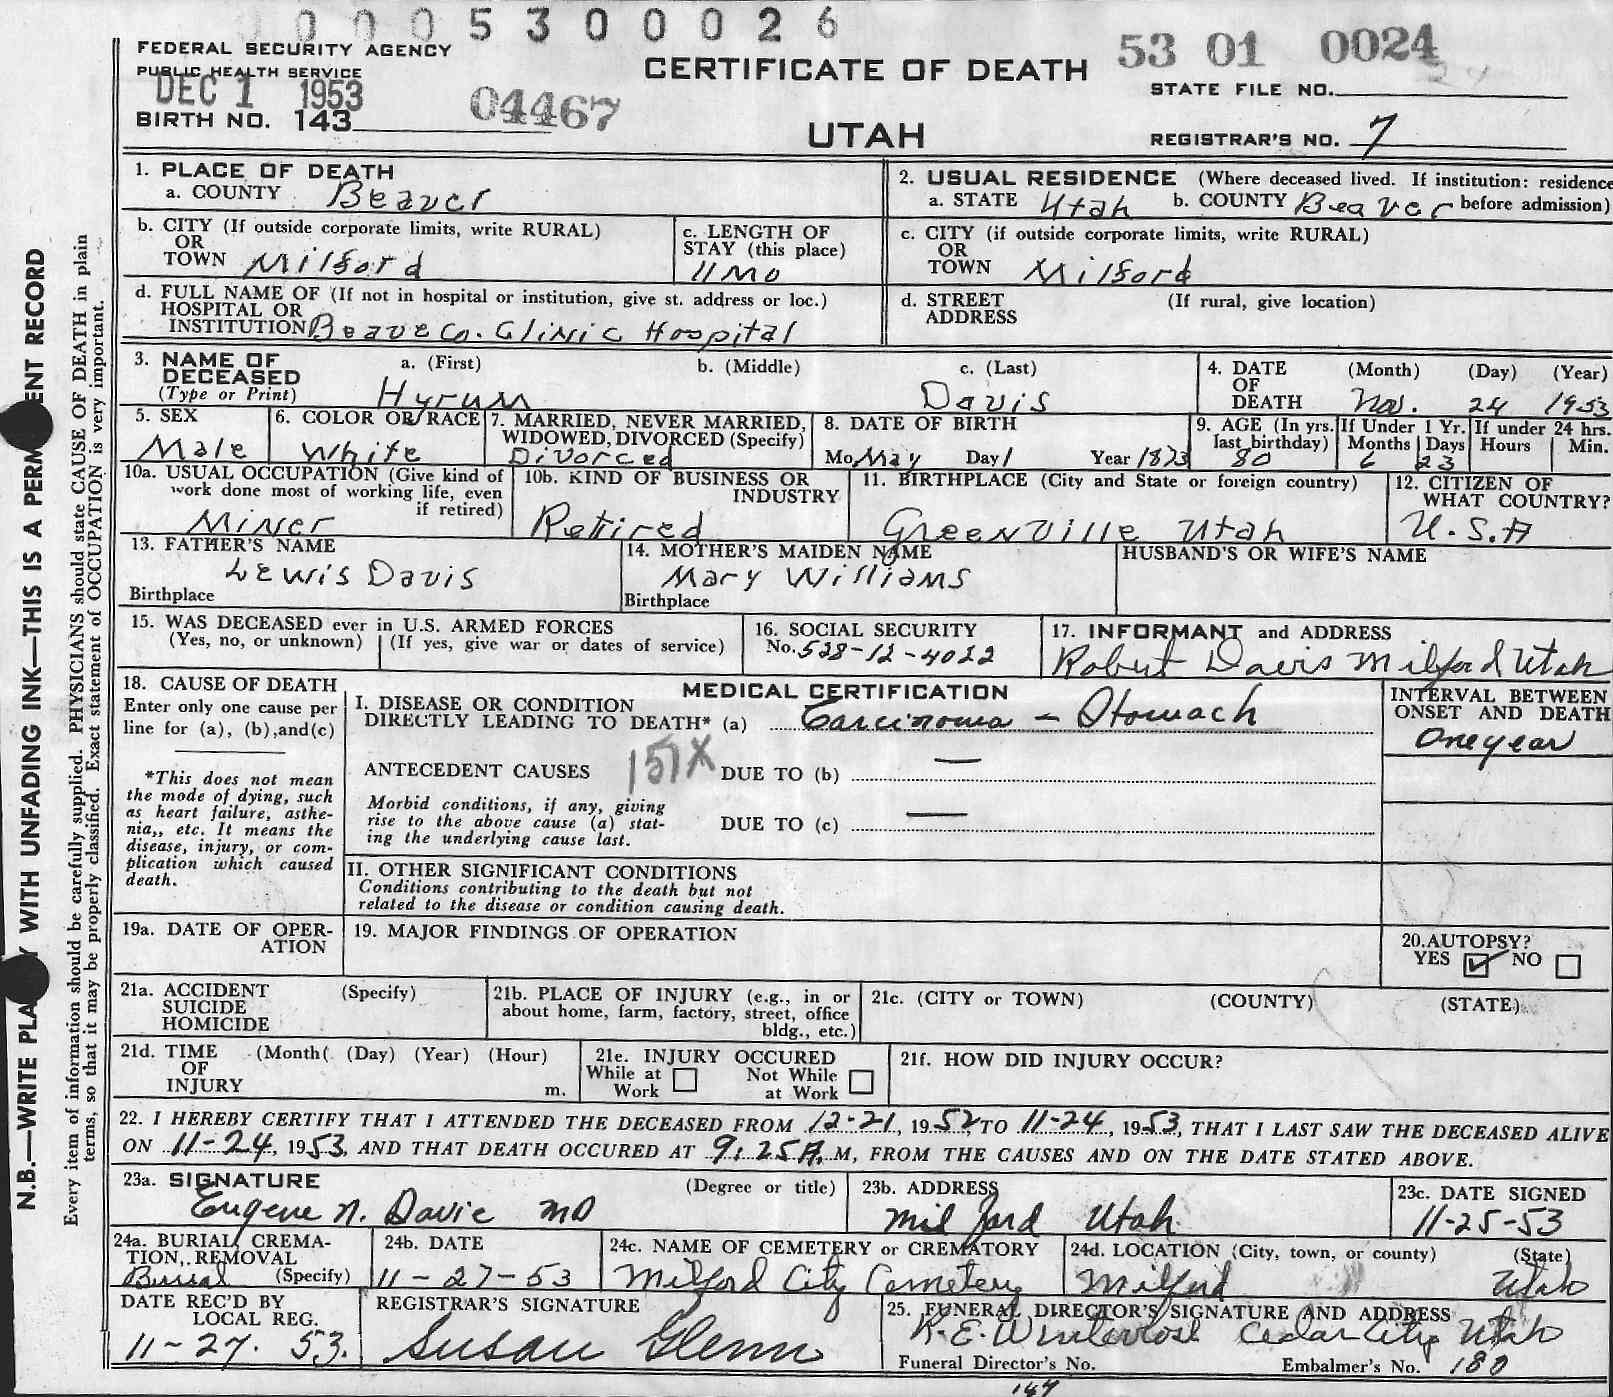 0 0 0 5 3 0 0 0 2 6
FEDERAL SECURITY AGENCY
PUBLIC HEALTH SERVICE
DEC 1 1953
BIRTH NO. 143
04467
CERTIFICATE OF DEATH
UTAH
53 01 0024
STATE FILE NO.
REGISTRAR'S NO. 7
1. PLACE OF DEATH
a. COUNTY Beaver
2. USUAL RESIDENCE (Where deceased lived. If institution: residence
a. STATE Utah b. COUNTY Beaver before admission)
b. CITY (If outside corporate limits, write RURAL)
OR
TOWN Milford
c. LENGTH OF
STAY (this place)
11 Mo
c. CITY (if outside corporate limits, write RURAL)
OR
TOWN Milford
d. FULL NAME OF (If not in hospital or institution, give st. address or loc.)
HOSPITAL OR
INSTITUTION Beave Co. Clinic Hospital
d. STREET (If rural, give location)
ADDRESS
3. NAME OF a. (First) b. (Middle) c. (Last)
DECEASED
(Type or Print) Hyrum Davis
4. DATE (Month) (Day) (Year)
OF
DEATH Nov. 24 1953
5. SEX
Male
6. COLOR OR RACE
White
7. MARRIED, NEVER MARRIED,
WIDOWED, DIVORCED (Specify)
Divorced
8. DATE OF BIRTH
Mo May Day 1 Year 1873
9. AGE (In yrs. last birthday)
80
If Under 1 Yr.
Months Days
6 23
If under 24 hrs.
Hours Min.
10a. USUAL OCCUPATION (Give kind of
work done most of working life, even
if retired)
Miner
10b. KIND OF BUSINESS OR
INDUSTRY
Retired
11. BIRTHPLACE (City and State or foreign country)
Greenville Utah
12. CITIZEN OF
WHAT COUNTRY?
U.S.A
13. FATHER'S NAME
Lewis Davis
Birthplace
14. MOTHER'S MAIDEN NAME
Mary Williams
Birthplace
HUSBAND'S OR WIFE'S NAME
15. WAS DECEASED ever in U.S. ARMED FORCES
(Yes, no, or unknown) (If yes, give war or dates of service)
16. SOCIAL SECURITY
No. 528-12-4022
17. INFORMANT and ADDRESS
Robert Davis Milford Utah
18. CAUSE OF DEATH
Enter only one cause per
line for (a), (b), and (c)
*This does not mean
the mode of dying, such
as heart failure, asthe-
nia,, etc. It means the
disease, injury, or com-
plication which caused
death.
MEDICAL CERTIFICATION
I. DISEASE OR CONDITION
DIRECTLY LEADING TO DEATH* (a) Carcinoma - Stomach
INTERVAL BETWEEN
ONSET AND DEATH
One year
ANTECEDENT CAUSES 151X DUE TO (b) —
Morbid conditions, if any, giving
rise to the above cause (a) stat-
ing the underlying cause last.
DUE TO (c) —
II. OTHER SIGNIFICANT CONDITIONS
Conditions contributing to the death but not
related to the disease or condition causing death.
19a. DATE OF OPER-
ATION
19. MAJOR FINDINGS OF OPERATION
20. AUTOPSY?
YES ☑ NO ☐
21a. ACCIDENT (Specify)
SUICIDE
HOMICIDE
21b. PLACE OF INJURY (e.g., in or
about home, farm, factory, street, office
bldg., etc.)
21c. (CITY or TOWN) (COUNTY) (STATE)
21d. TIME (Month( (Day) (Year) (Hour)
OF
INJURY m.
21e. INJURY OCCURED
While at Work ☐ Not While at Work ☐
21f. HOW DID INJURY OCCUR?
22. I HEREBY CERTIFY THAT I ATTENDED THE DECEASED FROM 12-21, 1952, TO 11-24, 1953, THAT I LAST SAW THE DECEASED ALIVE
ON 11-24, 1953, AND THAT DEATH OCCURED AT 9:25 A. M, FROM THE CAUSES AND ON THE DATE STATED ABOVE.
23a. SIGNATURE (Degree or title)
Eugene N. Davie MD
23b. ADDRESS
Milford Utah
23c. DATE SIGNED
11-25-53
24a. BURIAL, CREMA-
TION, REMOVAL
Burial (Specify)
24b. DATE
11-27-53
24c. NAME OF CEMETERY or CREMATORY
Milford City Cemetery
24d. LOCATION (City, town, or county) (State)
Milford Utah
DATE REC'D BY
LOCAL REG.
11-27. 53.
REGISTRAR'S SIGNATURE
Susan Glenn
25. FUNERAL DIRECTOR'S SIGNATURE AND ADDRESS
Cedar City Utah
Funeral Director's No. 147
Embalmer's No. 180
N.B.—WRITE PLA Y WITH UNFADING INK—THIS IS A PERM ENT RECORD
Every item of information should be carefully supplied. PHYSICIANS should state CAUSE OF DEATH in plain
terms, so that it may be properly classified. Exact statement of OCCUPATION is very important.